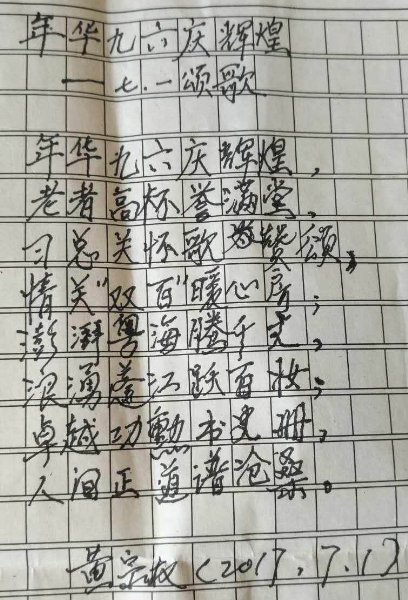 年华九六庆辉煌
——七.一颂歌
年华九六庆辉煌,
老者高标誉满堂,
习总关怀歌赞颂,
情关"双百"暖心房;
澎湃粤海腾千尤,
浪涌莲江跃百妆;
卓越功勳书史册,
人间正道谱沧桑。
黄宗权(2017.7.1)